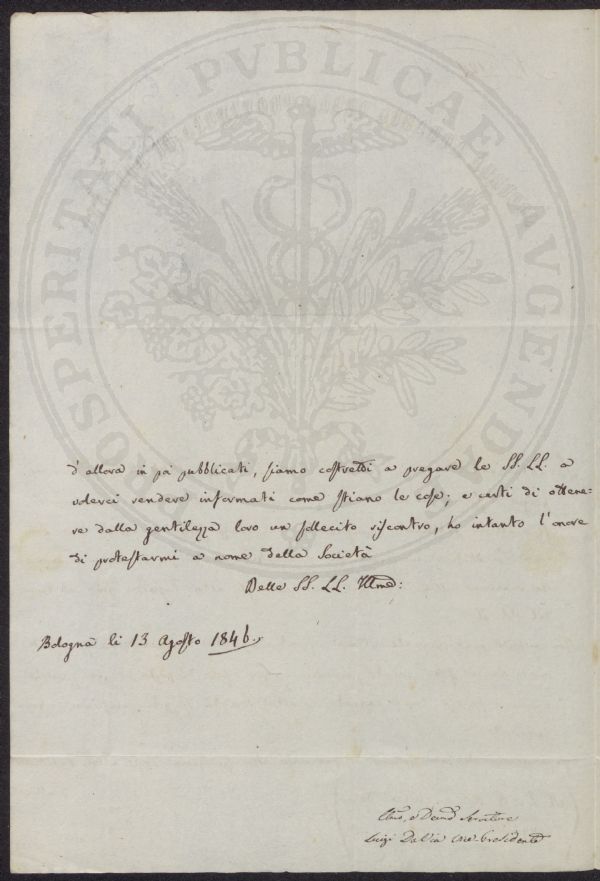 PROSPERITATI PVBLICAE AVGENDAE
d'allora in poi pubblicati, siamo costretti a pregare le SS. LL. a
volerci rendere informati come stiano le cose; e certi di ottene=
re dalla gentilezza loro un sollecito riscontro, ho intanto l'onore
di protestarmi a nome della Società
Delle SS. LL. Illme:
Bologna li 13 Agosto 1846.
Servitore
Luigi Vice-Presidente